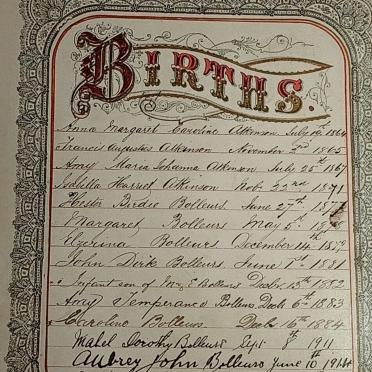 BIRTHS.
Anna Margaret Caroline Atkinson July 19th 1864
Francis Augustus Atkinson November 2nd 1865
Amy Maria Johanna Atkinson July 25th 1867
Isletta Harriet Atkinson Nov. 22nd 1871
Hester Birdie Bolleurs June 27th
Margaret Bolleurs May 5th
Uzerina Bolleurs December 14th
John Dirk Bolleurs June 1st 1881
Infant son of Bolleurs Decbr 13th 1882
Amy Temperance Bolleurs Decb 6th 1883
Caroline Bolleurs Decb 16th 1884
Mabel Dorothy Bolleurs Sept 8th 1911
Aubrey John Bolleurs June 10th